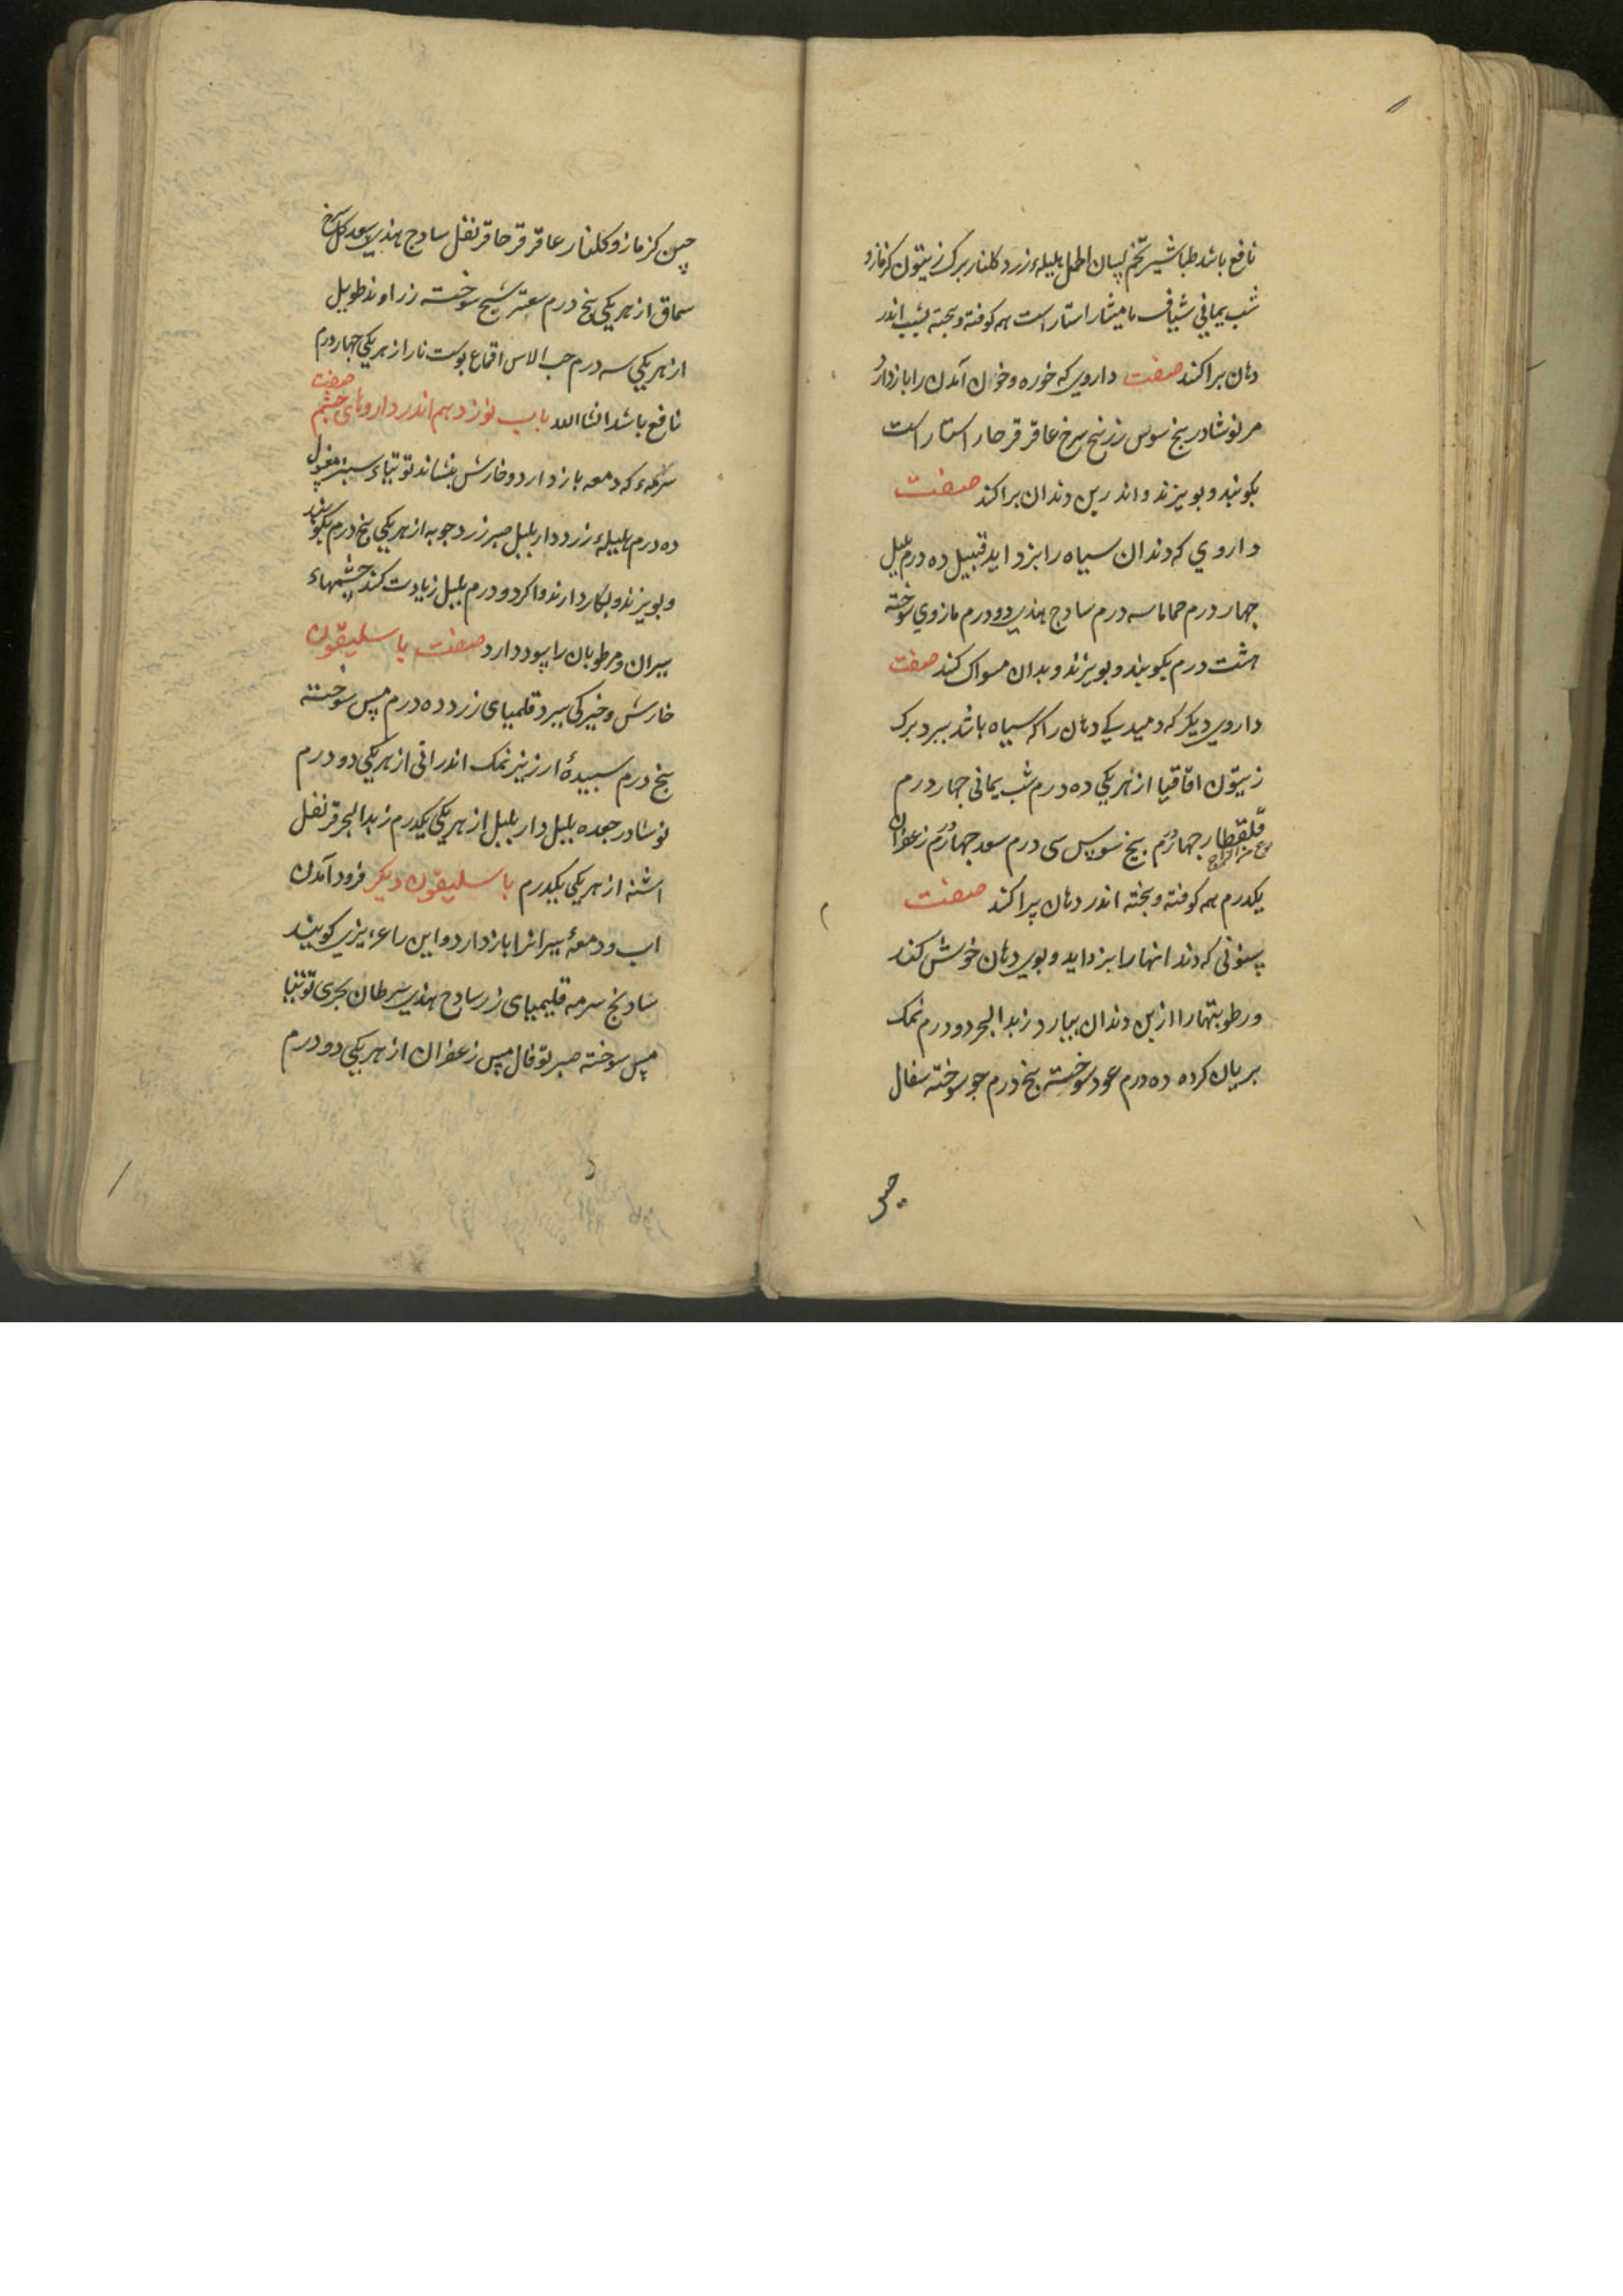 نافع باشد طباشیر تخم لسان الحمل هلیلهٔ زرد کلنار برک زیتون کزمازو
شب یمانی شیاف مامیثا راستاراست همه کوفته و بیخته بشب اندر
دهان براکند صفت داروی که خوره و خون آمدن را بازدارد
مر نوشادر بیخ سوس زرنیخ سرخ عاقرقرحا راستاراست
بکوبند و بویزند و اندر بن دندان براکند صفت
داروی که دندان سیاه را بزداید قنبیل ده درم بلبل
جهار درم حماما سه درم سادج هندی دو درم مازوی سوخته
هشت درم بکوبند و بویزند و بدان مسواک کند صفت
داروی دیکر که دمیدکی دهان را که سیاه باشد ببرد برک
زیتون اقاقیا از هر یکی ده درم شب یمانی جهار درم
قلقطار جهاردرم بیخ سوس سی درم سعد جهاردرم زعفران
نوع من الزاج
یکدرم همه کوفته و بیخته اندر دهان پراکند صفت
سنونی که دندانها را بزداید و بوی دهان خوش کند
و رطوبتها را از بن دندان بیارد زبد البحر دو درم نمک
بریان کرده ده درم عود سوخته پنج درم جو سوخته سفال
جینی
چین کزمازو کلنار عاقرقرحا قرنفل سادج هندی سعد کل سرخ
سماق از هر یکی پنج درم سعتر شیح سوخته زراوند طویل
از هر یکی سه درم حب الاس اقماع پوست نار از هر یکی جهاردرم
نافع باشد انشاالله باب نوزدهم اندر داروهای چشم صفت
سرمهٔ که دمعه بازدارد و خارش بنشاند توتیاء سبز مغسول
ده درم هلیلهٔ زرد داربلبل صبر زردجوبه از هر یکی پنج درم بکوبند
و بویزند و بکار دارند و اکر دو درم بلبل زیادت کند چشمهاء
پیران و مرطوبان را سود دارد صفت باسلیقون
خارش و خیرکی ببرد قلمیای زرد ده درم مس سوخته
پنج درم سبیدهٔ ارزیز نمک اندرانی از هر یکی دو درم
نوشادر جعده بلبل داربلبل از هر یکی یکدرم زبد البحر قرنفل
اشنه از هر یکی یکدرم باسلیقون دیکر فرود آمدن
اب و دمعهٔ پیرانرا بازدارد و این را عزیزی کویند
شادنج سرمه قلیمیای زر سادج هندی سرطان بحری توتیا
مس سوخته صبر توفال مس زعفران از هر یکی دو درم